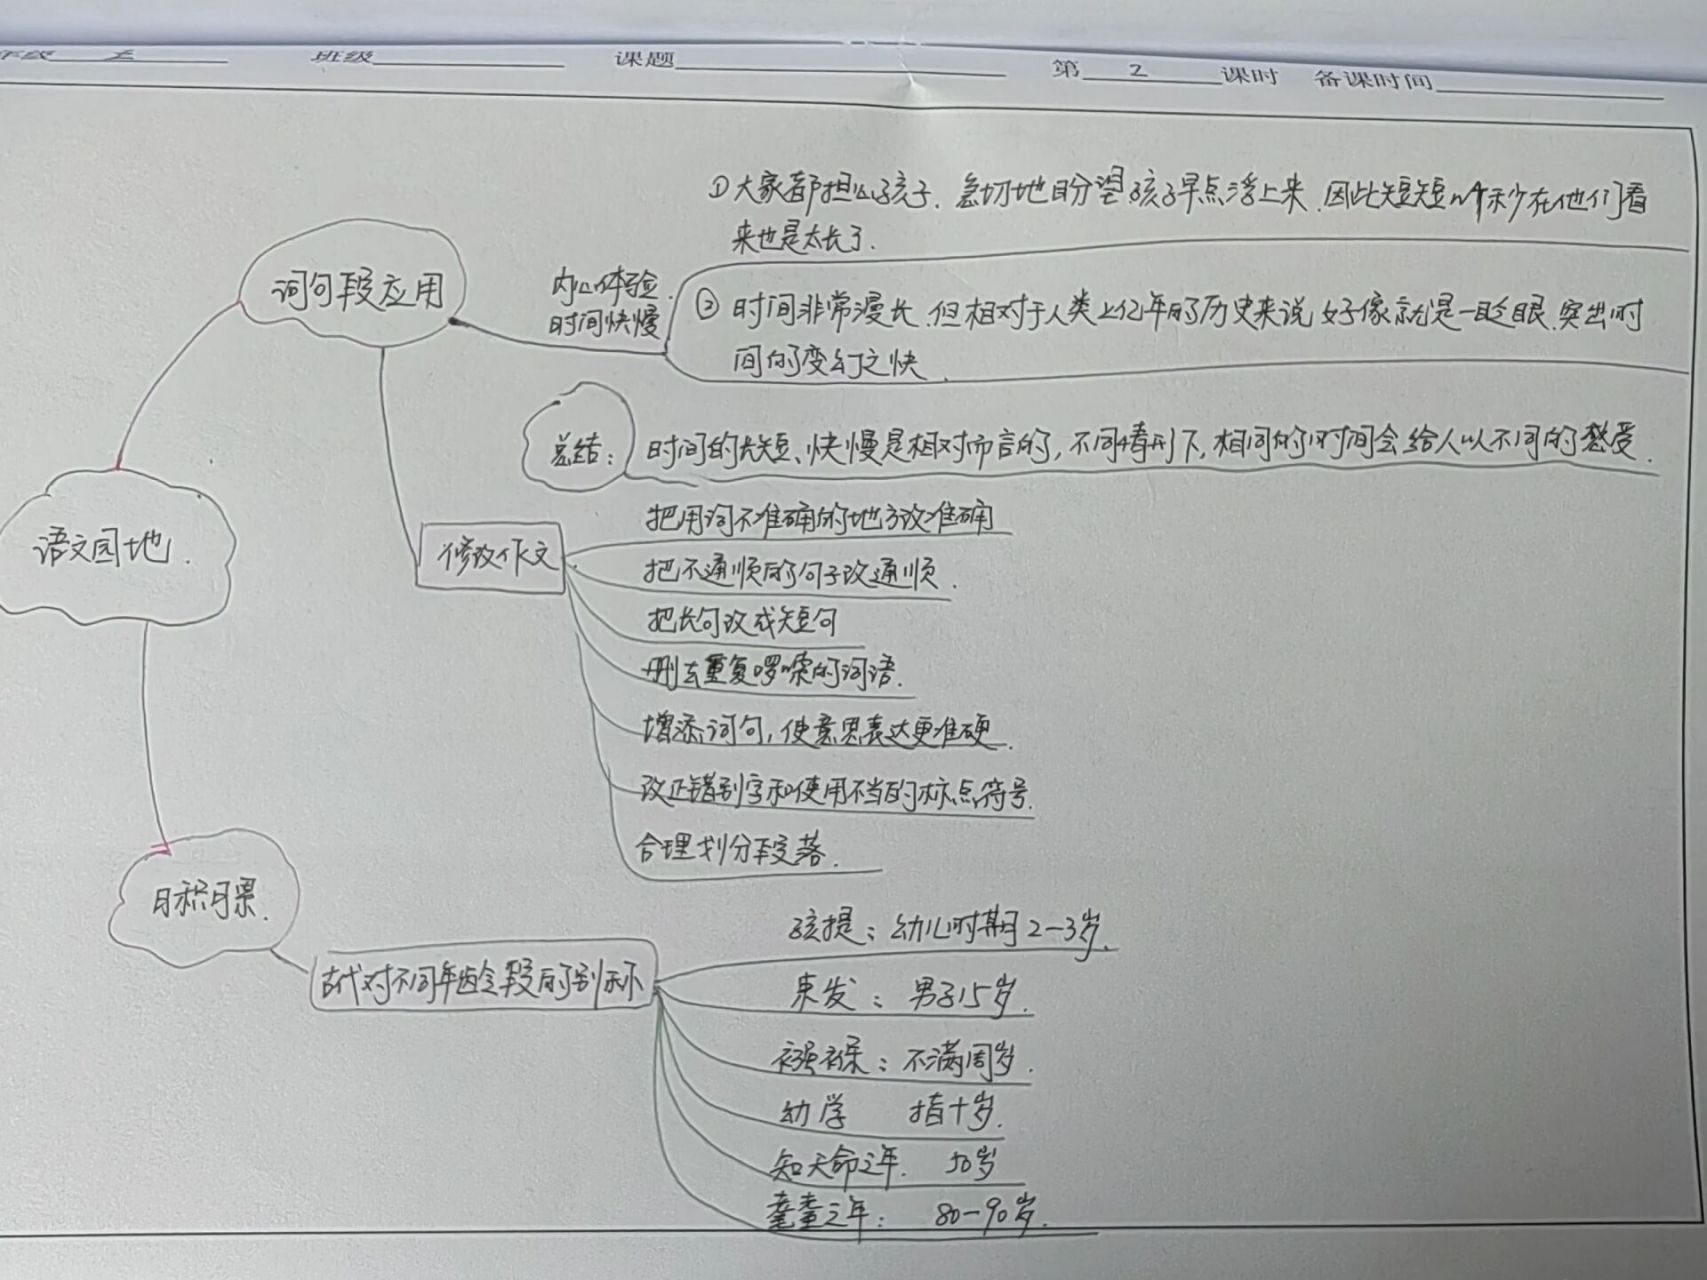 年级 五 班级 课题 第 2 课时 备课时间
①大家都担心孩子,急切地盼望孩子早点浮上来,因此短短几秒在他们看
来也是太长了.
词句段应用
内心体验.
时间快慢
②时间非常漫长,但相对于人类上亿年的历史来说好像就是一眨眼,突出时
间的变幻之快.
总结:
时间的长短、快慢是相对而言的,不同情形下,相同的时间会给人以不同的感受.
语文园地.
修改作文
把用词不准确的地方改准确
把不通顺的句子改通顺.
把长句改成短句
删去重复啰嗦的词语.
增添词句,使意思表达更准硬.
改正错别字和使用不当的标点符号.
合理划分段落.
日积月累.
古代对不同年龄段的别称
孩提:幼儿时期2-3岁.
束发:男子15岁.
襁褓:不满周岁.
幼学 指十岁.
知天命之年. 50岁
耄耋之年: 80-90岁.